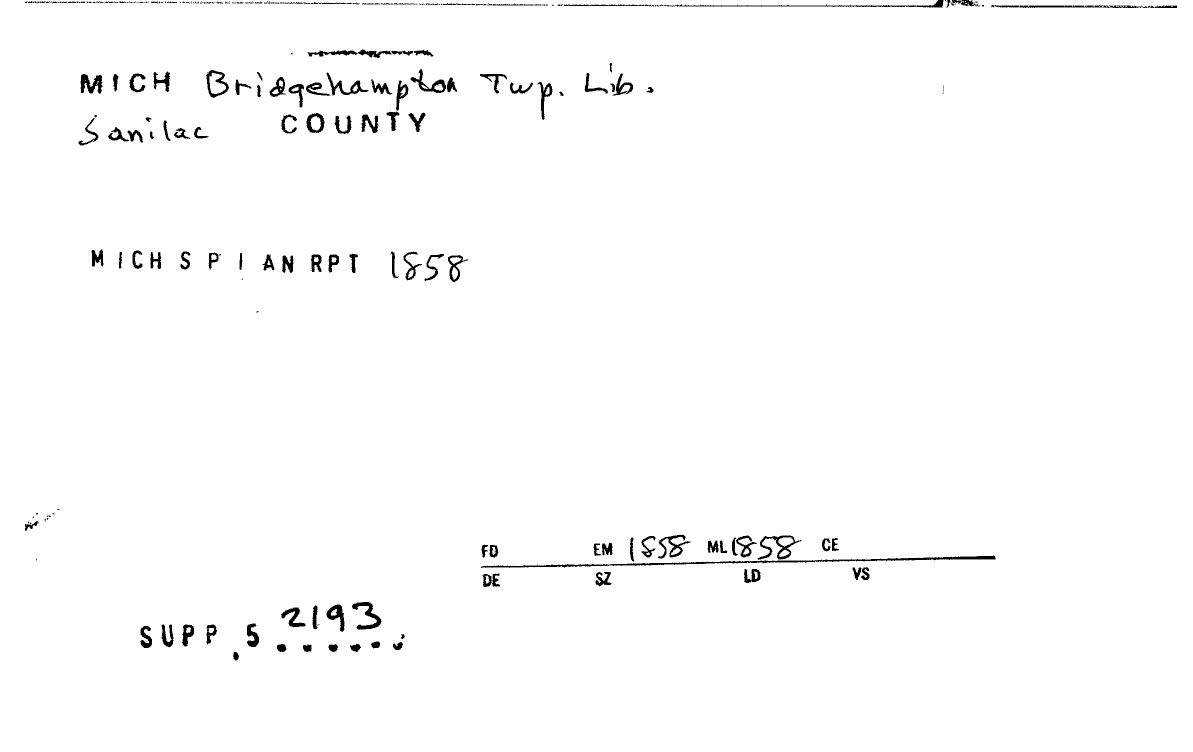 MICH Bridgehampton Twp. Lib.
Sanilac COUNTY
MICH S P I AN RPT 1858
FD EM 1858 ML 1858 CE
DE SZ LD VS
SUPP. 5 2193